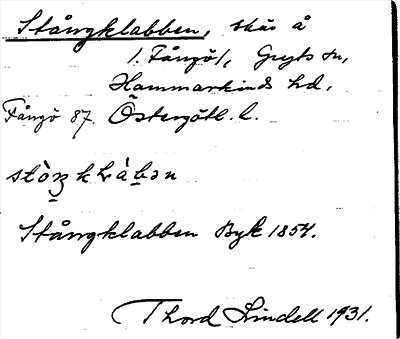 Stångklabben, skär å
/. Fångö/, Gryts sn,
Hammarkinds hd,
Fångö 87. Östergötl. l.
Stångklabben Byk 1854.
Thord Lindell 1931.